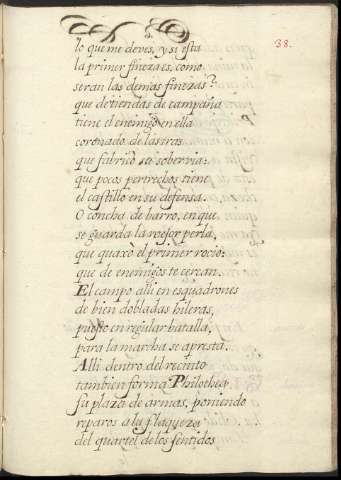 38.
lo que me deves, y si esta
la primer fineza es, como
seran las demas finezas?
que de tiendas de campaña
tiene el enemigo en ella
coronado de las iras
que fabricò su sobervia:
que pocos pertrechos tiene
el castillo en su defensa.
O concha de barro, en que
se guarda la mejor perla,
que quaxò el primer rocio:
que de enemigos te cercan.
El campo alli en esquadrones
de bien dobladas hileras,
puesto en regular batalla,
para la marcha se apresta.
Alli dentro del recinto
tambien forma Philothea
su plaza de armas, poniendo
reparos a la flaqueza
del quartel de los sentidos